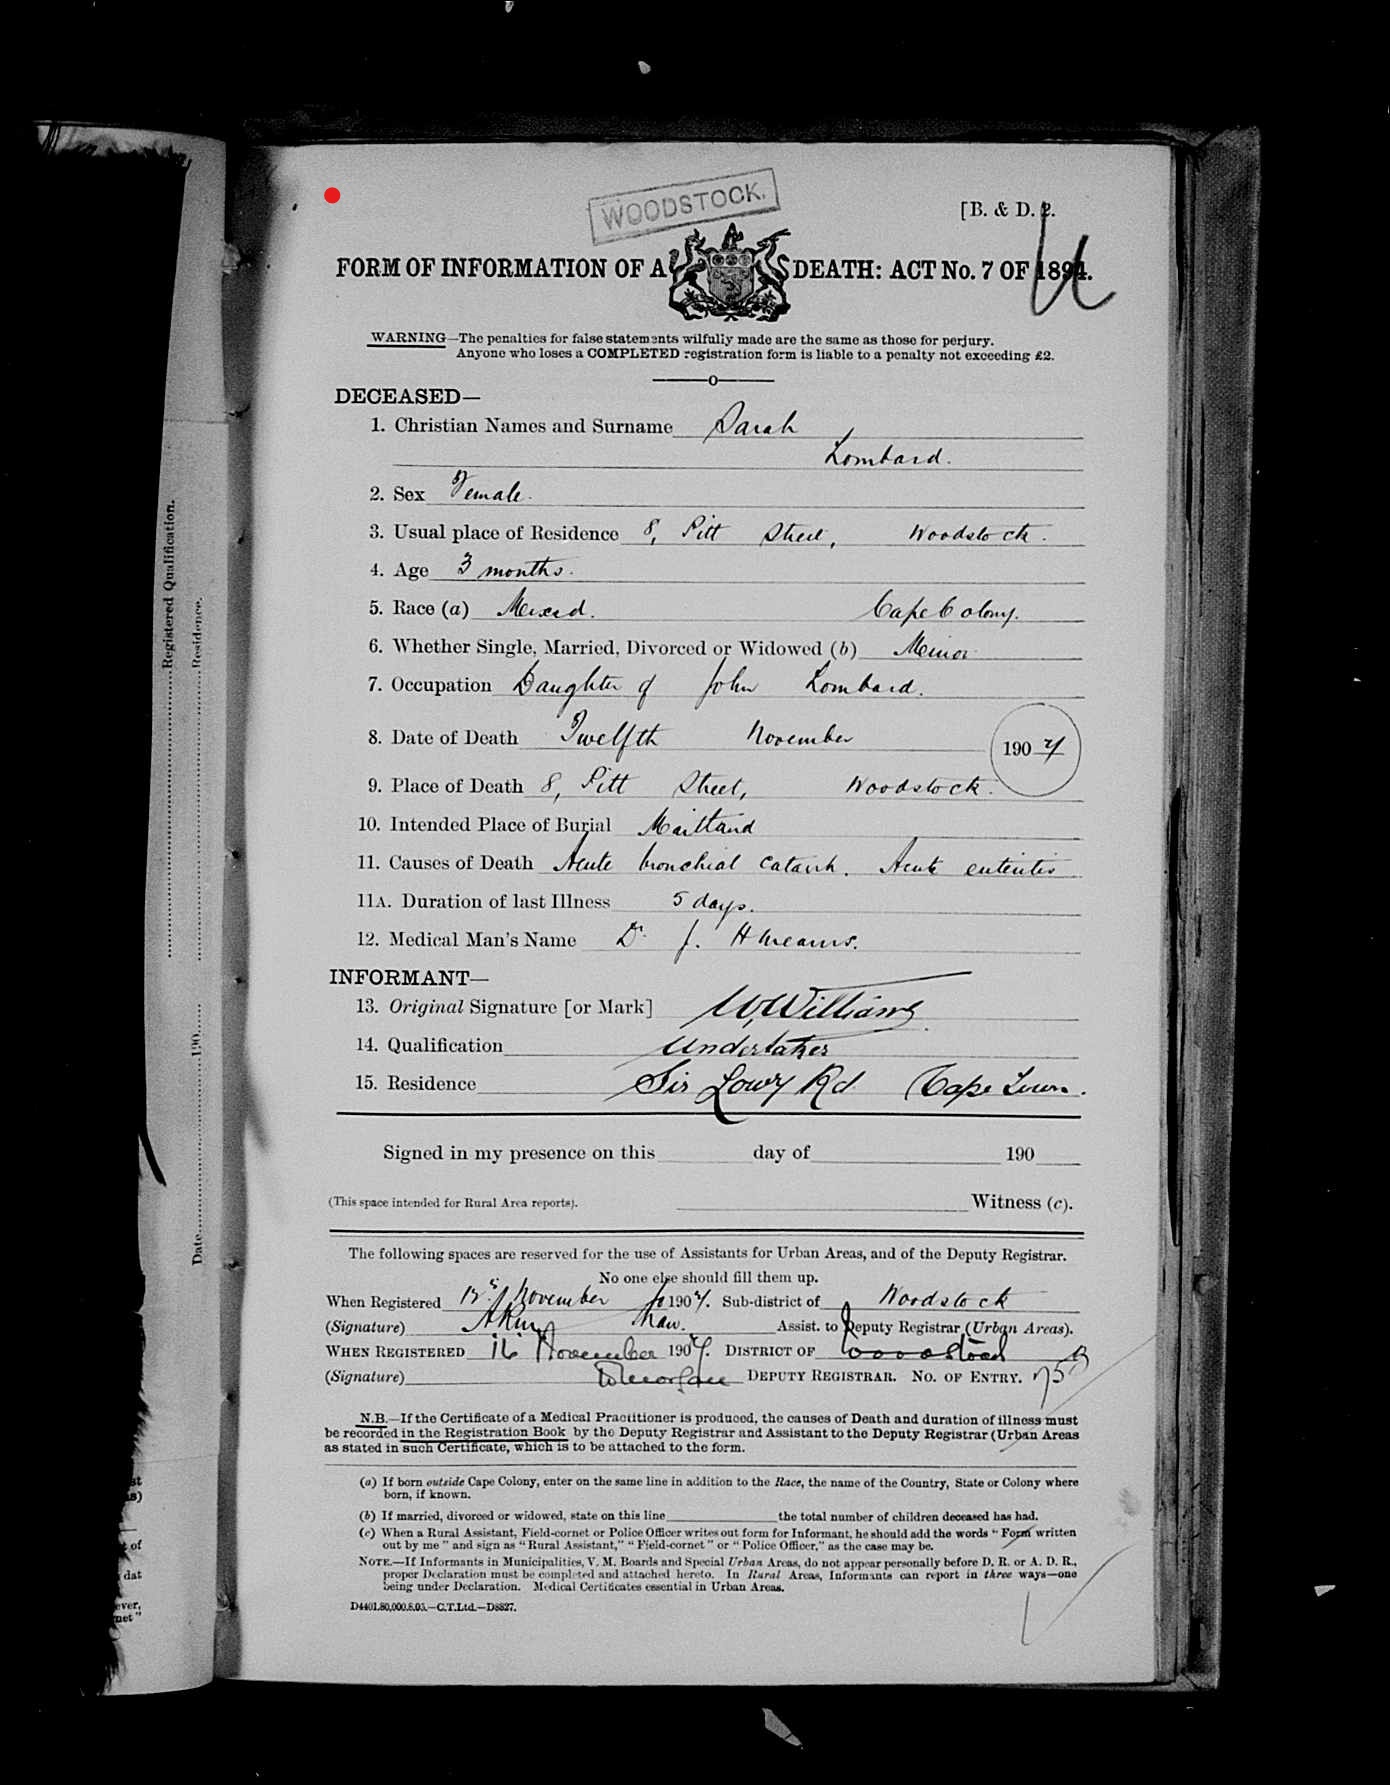 WOODSTOCK.
[B. & D. 2.
FORM OF INFORMATION OF A DEATH: ACT No. 7 OF 1894.
WARNING—The penalties for false statements wilfully made are the same as those for perjury.
Anyone who loses a COMPLETED registration form is liable to a penalty not exceeding £2.
DECEASED—
1. Christian Names and Surname Sarah
Lombard.
2. Sex Female.
3. Usual place of Residence 8, Pitt Street, Woodstock.
4. Age 3 months.
5. Race (a) Mixed. Cape Colony.
6. Whether Single, Married, Divorced or Widowed (b) Minor
7. Occupation Daughter of John Lombard.
8. Date of Death Twelfth November 1907
9. Place of Death 8, Pitt Street, Woodstock.
10. Intended Place of Burial Maitland
11. Causes of Death Acute bronchial catarrh. Acute enteritis
11A. Duration of last Illness 5 days.
12. Medical Man's Name Dr. J.
INFORMANT—
13. Original Signature [or Mark] W. Williams
14. Qualification Undertaker
15. Residence Sir Lowry Rd Cape Town.
Signed in my presence on this day of 190
(This space intended for Rural Area reports). Witness (c).
The following spaces are reserved for the use of Assistants for Urban Areas, and of the Deputy Registrar.
No one else should fill them up.
When Registered November 1907. Sub-district of Woodstock
(Signature) Assist. to Deputy Registrar (Urban Areas).
WHEN REGISTERED 16 November 1907. DISTRICT OF Woodstock
(Signature) DEPUTY REGISTRAR. NO. OF ENTRY. 758
N.B.—If the Certificate of a Medical Practitioner is produced, the causes of Death and duration of illness must
be recorded in the Registration Book by the Deputy Registrar and Assistant to the Deputy Registrar (Urban Areas
as stated in such Certificate, which is to be attached to the form.
(a) If born outside Cape Colony, enter on the same line in addition to the Race, the name of the Country, State or Colony where
born, if known.
(b) If married, divorced or widowed, state on this line the total number of children deceased has had.
(c) When a Rural Assistant, Field-cornet or Police Officer writes out form for Informant, he should add the words "Form written
out by me" and sign as "Rural Assistant," "Field-cornet" or "Police Officer," as the case may be.
NOTE.—If Informants in Municipalities, V. M. Boards and Special Urban Areas, do not appear personally before D. R. or A. D. R.,
proper Declaration must be completed and attached hereto. In Rural Areas, Informants can report in three ways—one
being under Declaration. Medical Certificates essential in Urban Areas.
D4401.80,000.8.05.—C.T.Ltd.—D8827.
Registered Qualification.
Residence.
Date 190